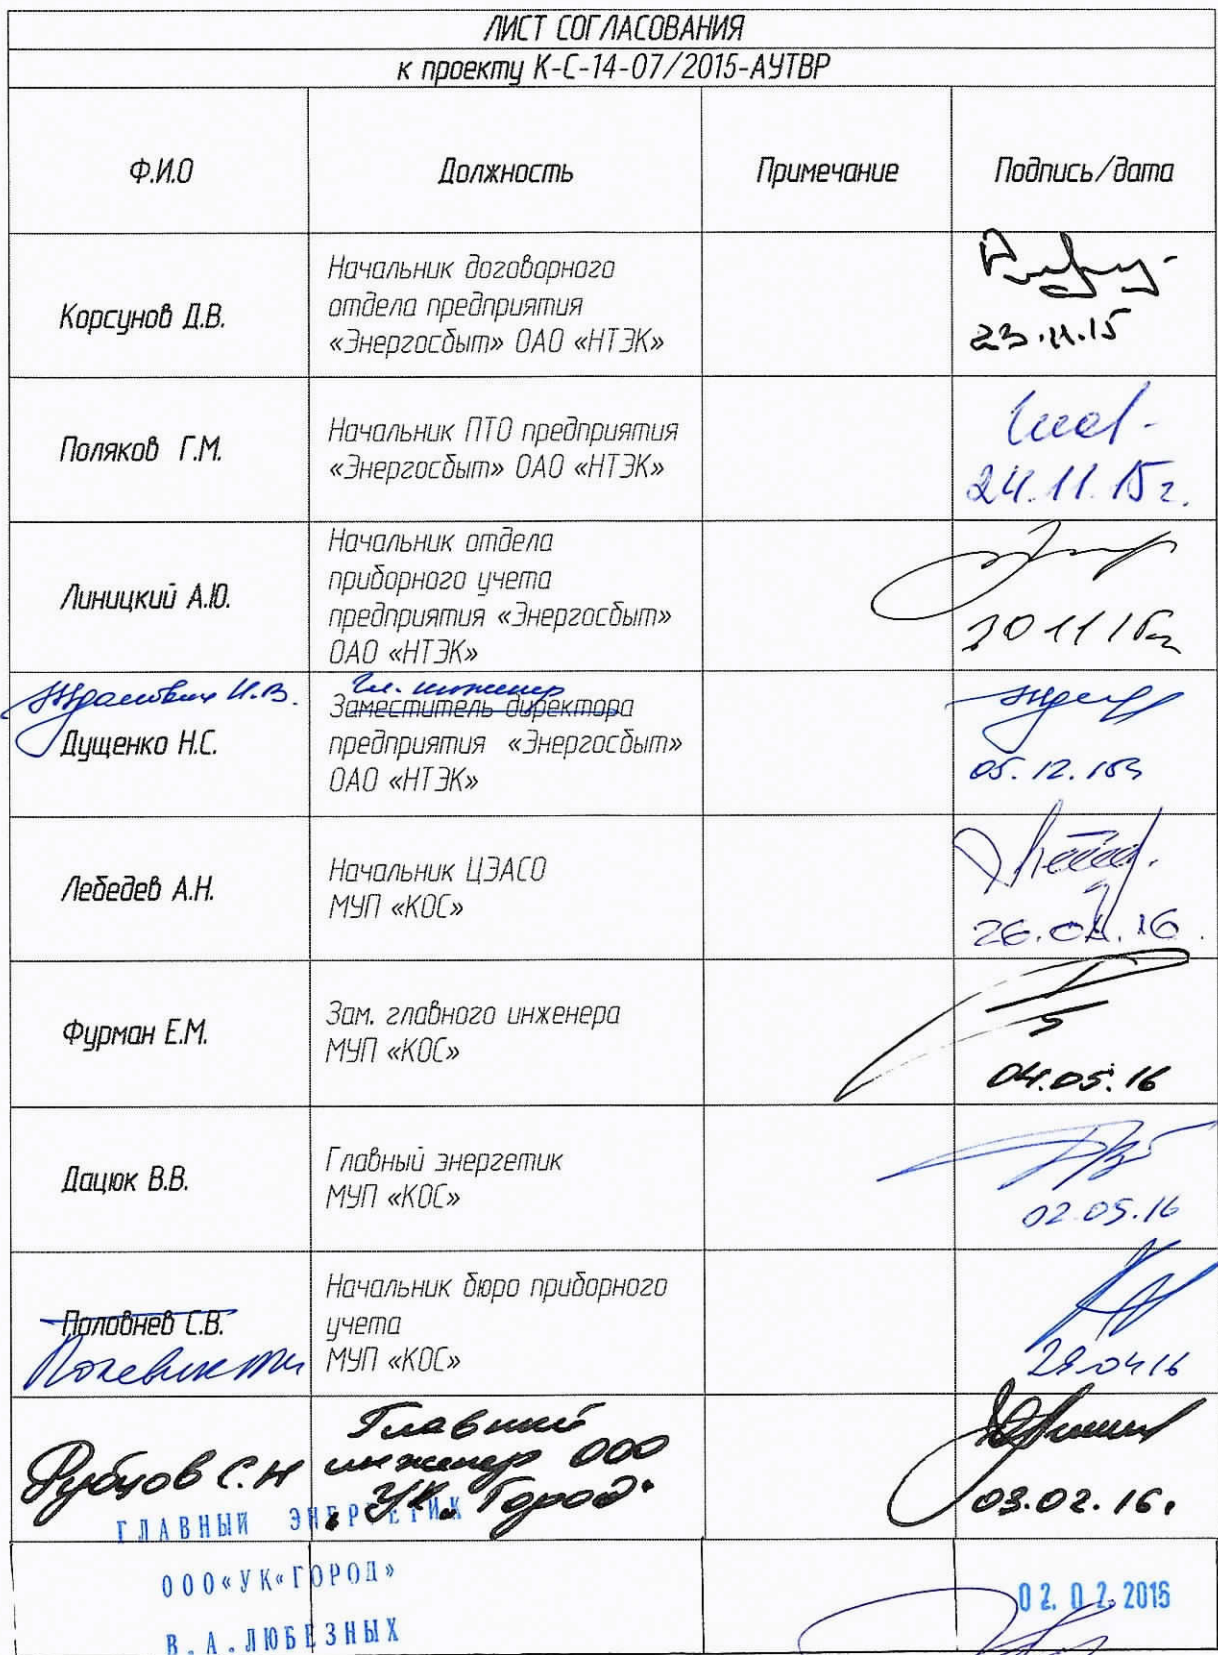 ЛИСТ СОГЛАСОВАНИЯ
к проекту К-С-14-07/2015-АУТВР
Ф.И.О
Должность
Примечание
Подпись/дата
Корсунов Д.В.
Начальник договорного
отдела предприятия
«Энергосбыт» ОАО «НТЭК»
23.11.15
Поляков Г.М.
Начальник ПТО предприятия
«Энергосбыт» ОАО «НТЭК»
24.11.15г.
Линицкий А.Ю.
Начальник отдела
приборного учета
предприятия «Энергосбыт»
ОАО «НТЭК»
30 11 15г
И.В.
Дущенко Н.С.
Гл. инженер
Заместитель директора
предприятия «Энергосбыт»
ОАО «НТЭК»
05.12.15г
Лебедев А.Н.
Начальник ЦЭАСО
МУП «КОС»
26.04.16.
Фурман Е.М.
Зам. главного инженера
МУП «КОС»
04.05.16
Дацюк В.В.
Главный энергетик
МУП «КОС»
02.05.16
Половнев С.В.
Начальник бюро приборного
учета
МУП «КОС»
29.04 16
Рубцов С.Н
Главный
инженер ООО
"УК "Город"
03.02.16.
ГЛАВНЫЙ ЭНЕРГЕТИК
ООО«УК«ГОРОД»
В.А.ЛЮБЕЗНЫХ
02.02.2016